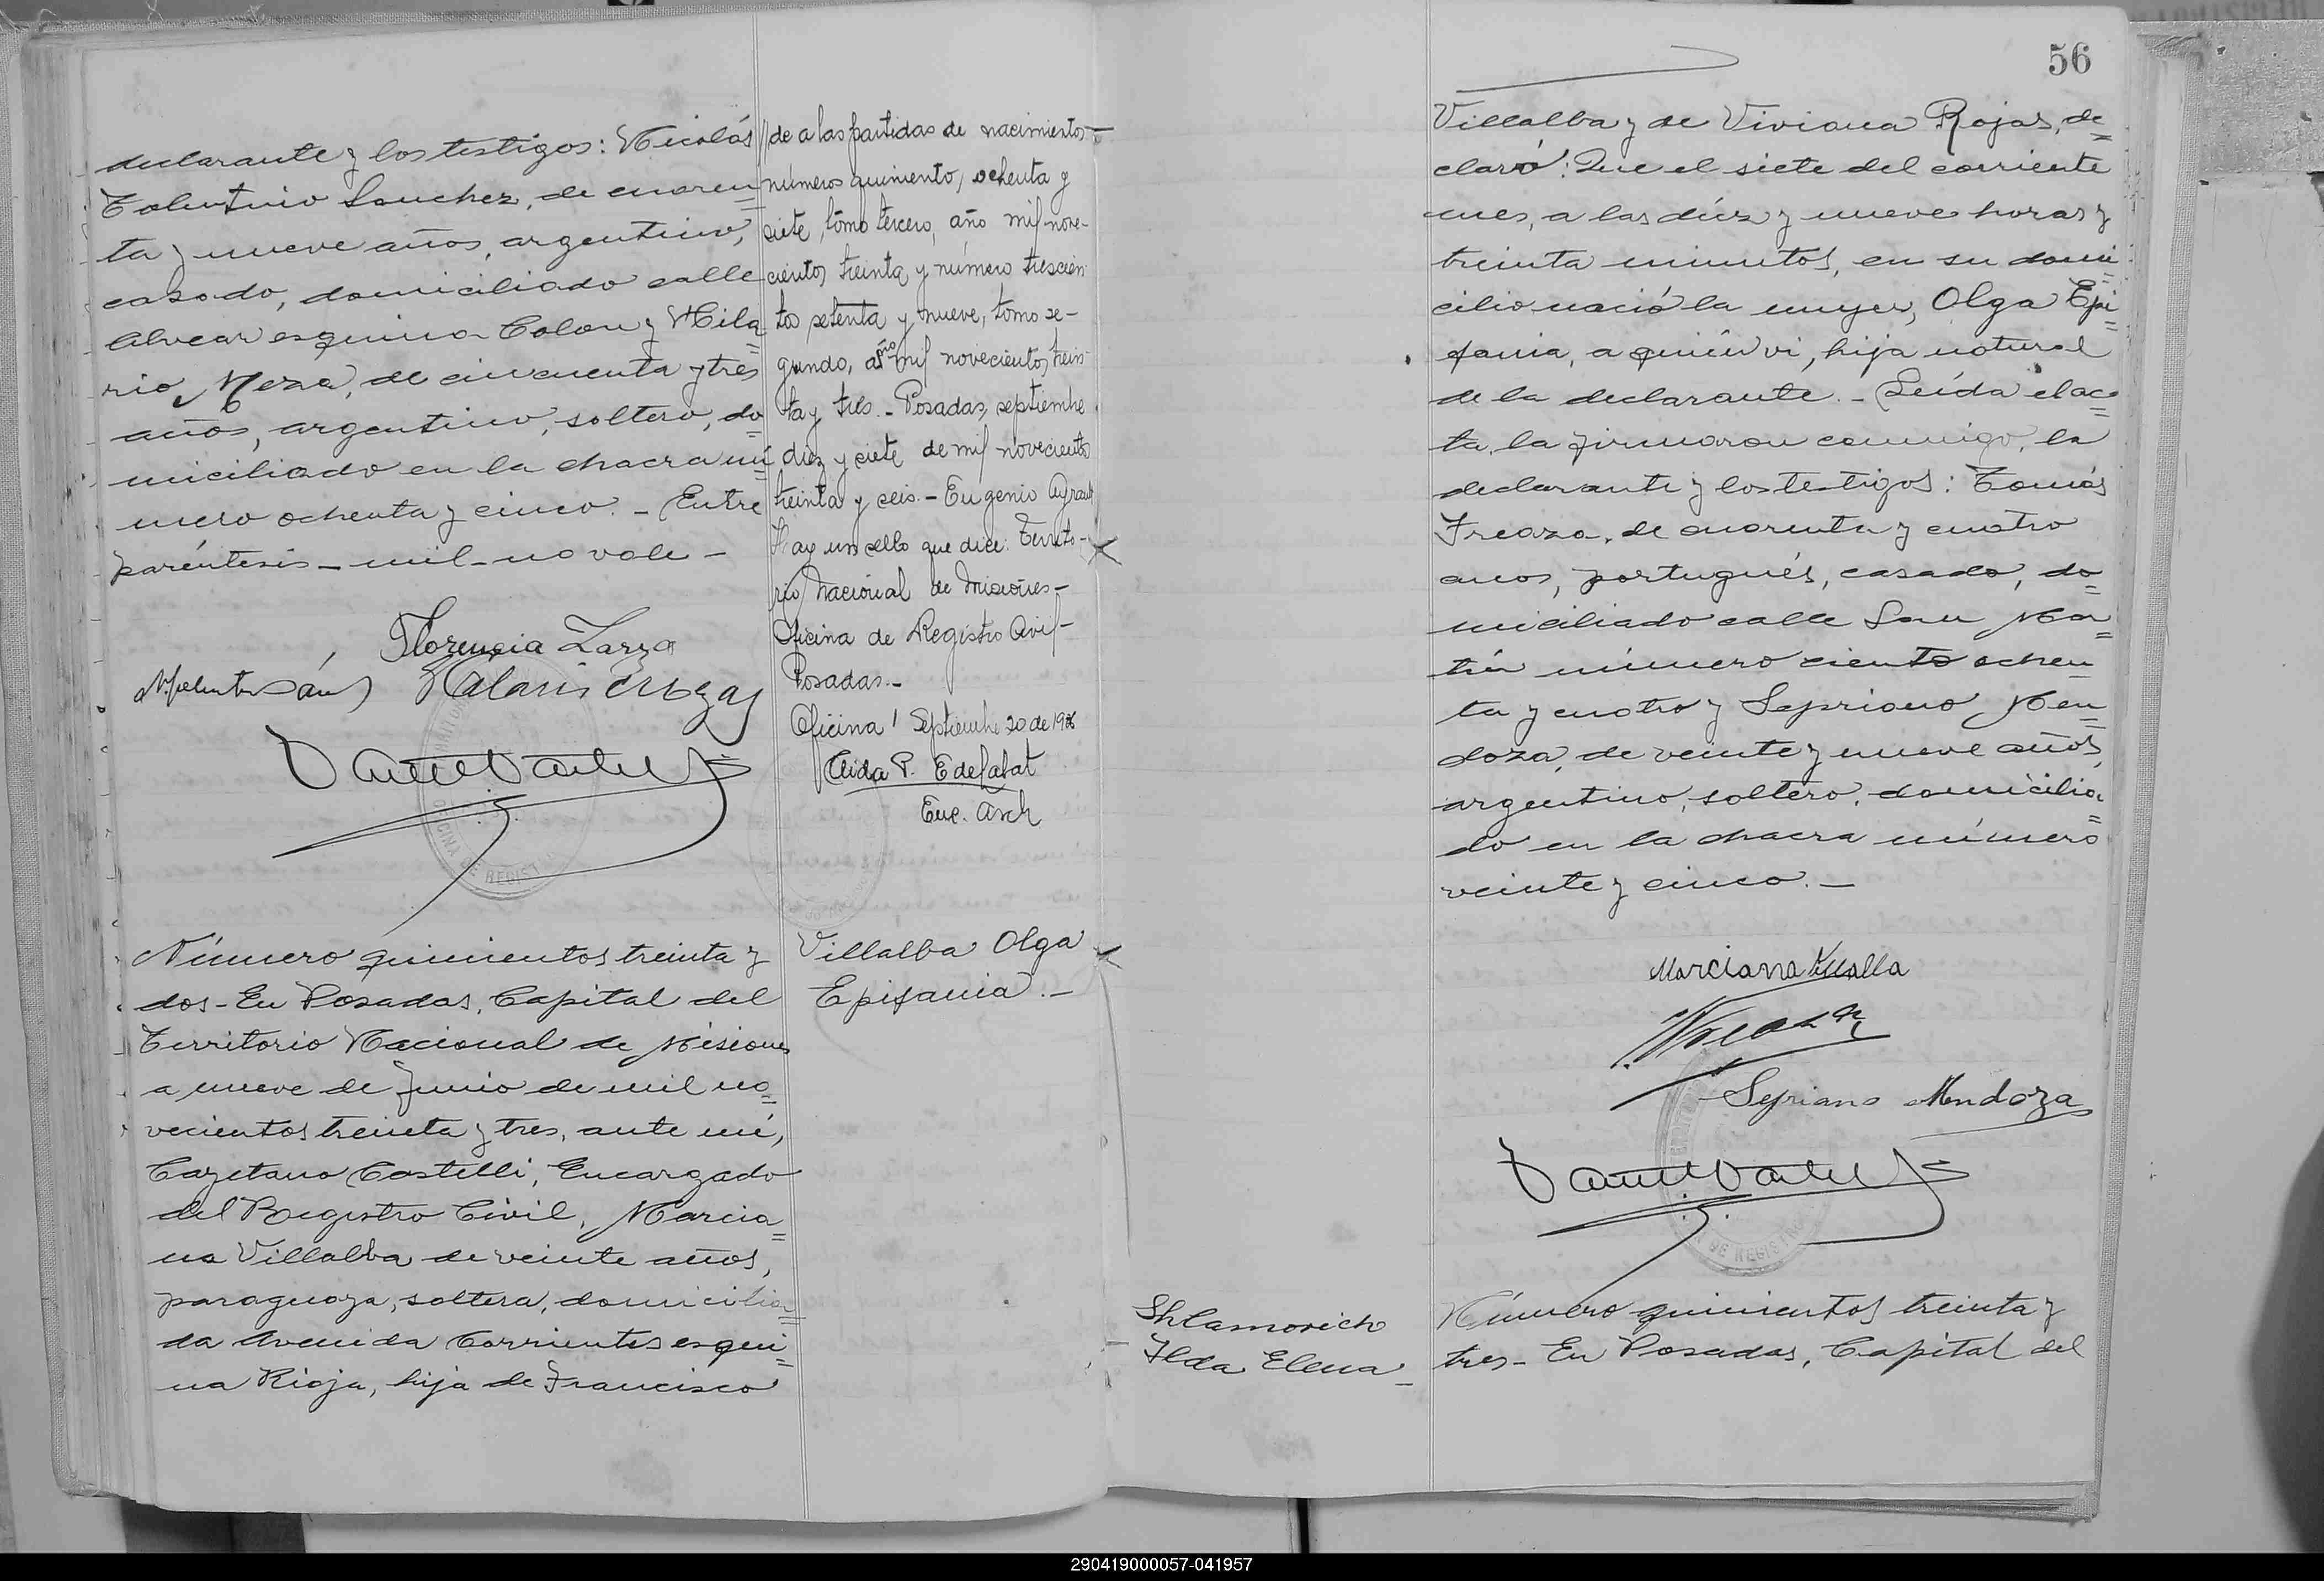 declarante y los testigos: Nicolás
Tolentino Sanchez, de cuaren=
ta y nueve años, argentino,
casado, domiciliado calle
Alvear esquina Colon y Hila=
rio Meza, de cincuenta y tres
años, argentino, soltero, do=
miciliado en la chacra nú=
mero ochenta y cinco. - Entre
paréntesis - mil - no vale -
Florencia Zarza
Número quinientos treinta y
dos - En Posadas, Capital del
Territorio Nacional de Misiones
a nueve de junio de mil no=
vecientos treinta y tres, ante mí,
Cayetano Castelli, Encargado
del Registro Civil, Marcia=
na Villalba de veinte años,
paraguaya, soltera, domicilia=
da Avenida Corrientes esqui=
na Rioja, hija de Francisco
// de a las partidas de nacimientos -
números quiniento, ochenta y
siete, tomo tercero, año mil nove-
cientos treinta y número trescien
tos setenta y nueve, tomo se-
gundo, año mil novecientos trein-
ta y tres. - Posadas, septiembre
diez y siete de mil noveciento
treinta y seis. - Eugenio
Hay un sello que dice: Territo-
rio Nacional de Misiones -
Oficina de Registro Civil -
Posadas. -
Oficina 1 Septiembre 20 de 1936
Aida P.
Enc. Arch
Villalba Olga
Epifania. -
56
Villalba y de Viviana Rojas, de=
claró: Que el siete del corriente
mes, a las diez y nueve horas y
treinta minutos, en su domi=
cilio nació la mujer, Olga Epi=
fania, a quién vi, hija natural
de la declarante. - Leída el ac=
ta, la firmaron conmigo, la
declarante y los testigos: Tomás
Freaza, de cuarenta y cuatro
anos, portugués, casado, do=
miciliado calle San Mar=
tín número ciento ochen=
ta y cuatro y Sepriano Men=
doza, de veinte y nueve años,
argentino, soltero, domicilia=
do en la chacra número
veinte y cinco. -
Marciana
Sepriano Mendoza
Shlamovich
Ilda Elena -
Número quinientos treinta y
tres - En Posadas, Capital del
290419000057-041957